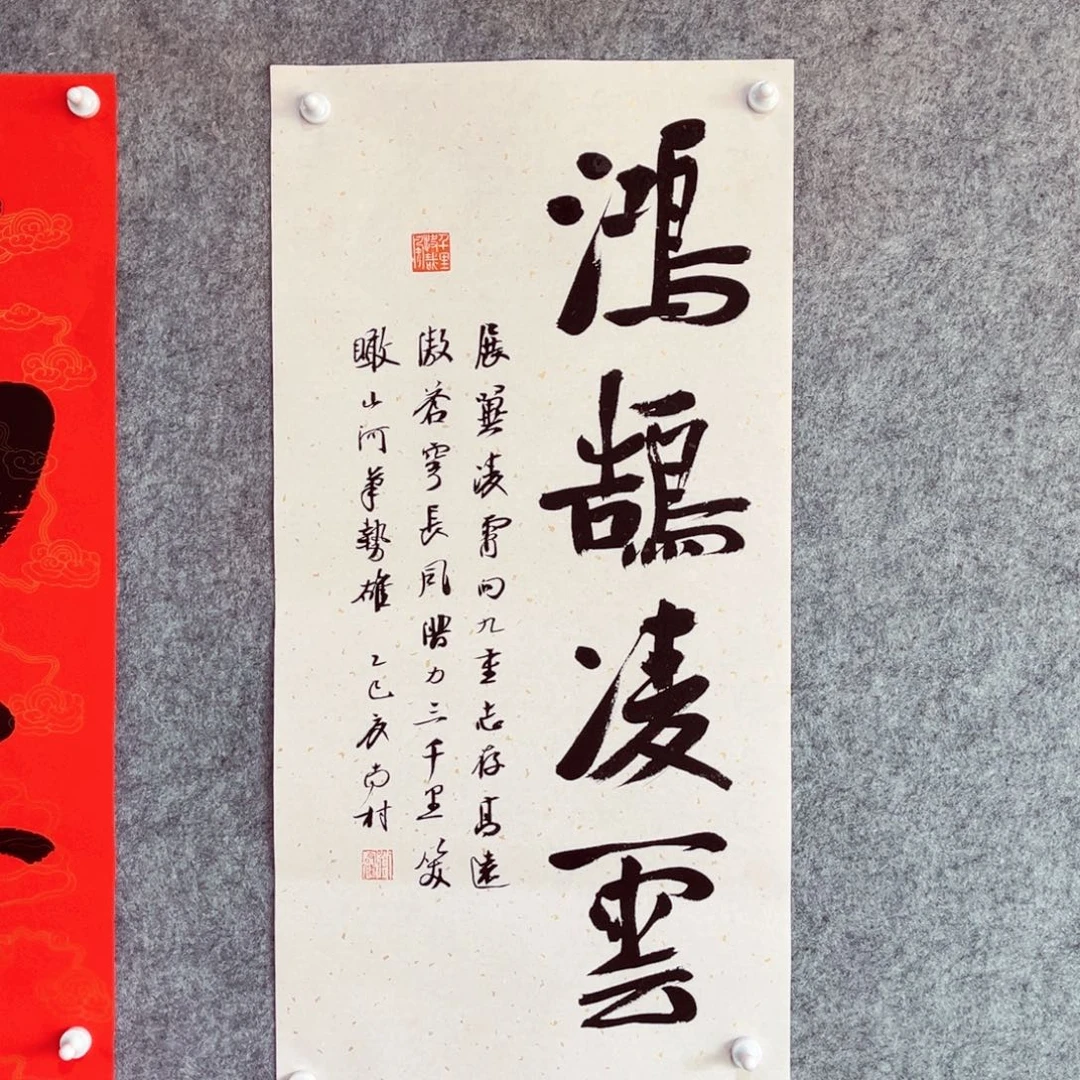 鴻鵠凌雲
展翼凌霄向九重志存高遠
傲蒼穹長風力三千里笑
瞰山河氣勢雄 乙巳夏南村